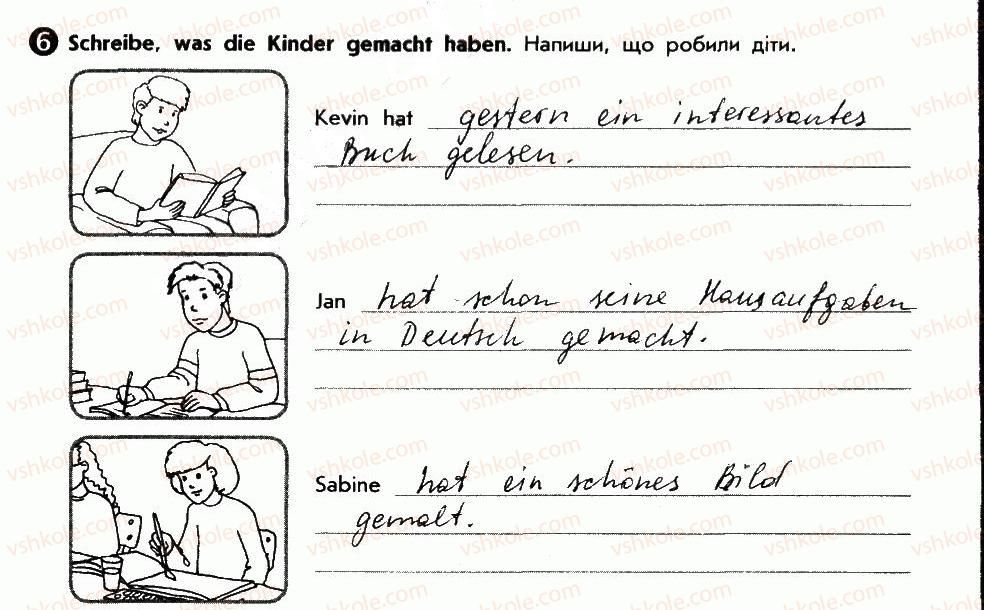 6 Schreibe, was die Kinder gemacht haben. Напиши, що робили діти.
Kevin hat gestern ein interessantes
Buch gelesen.
Jan hat schon seine Hausaufgaben
in Deutsch gemacht.
Sabine hat ein schönes Bild
gemalt.
vshkole.com